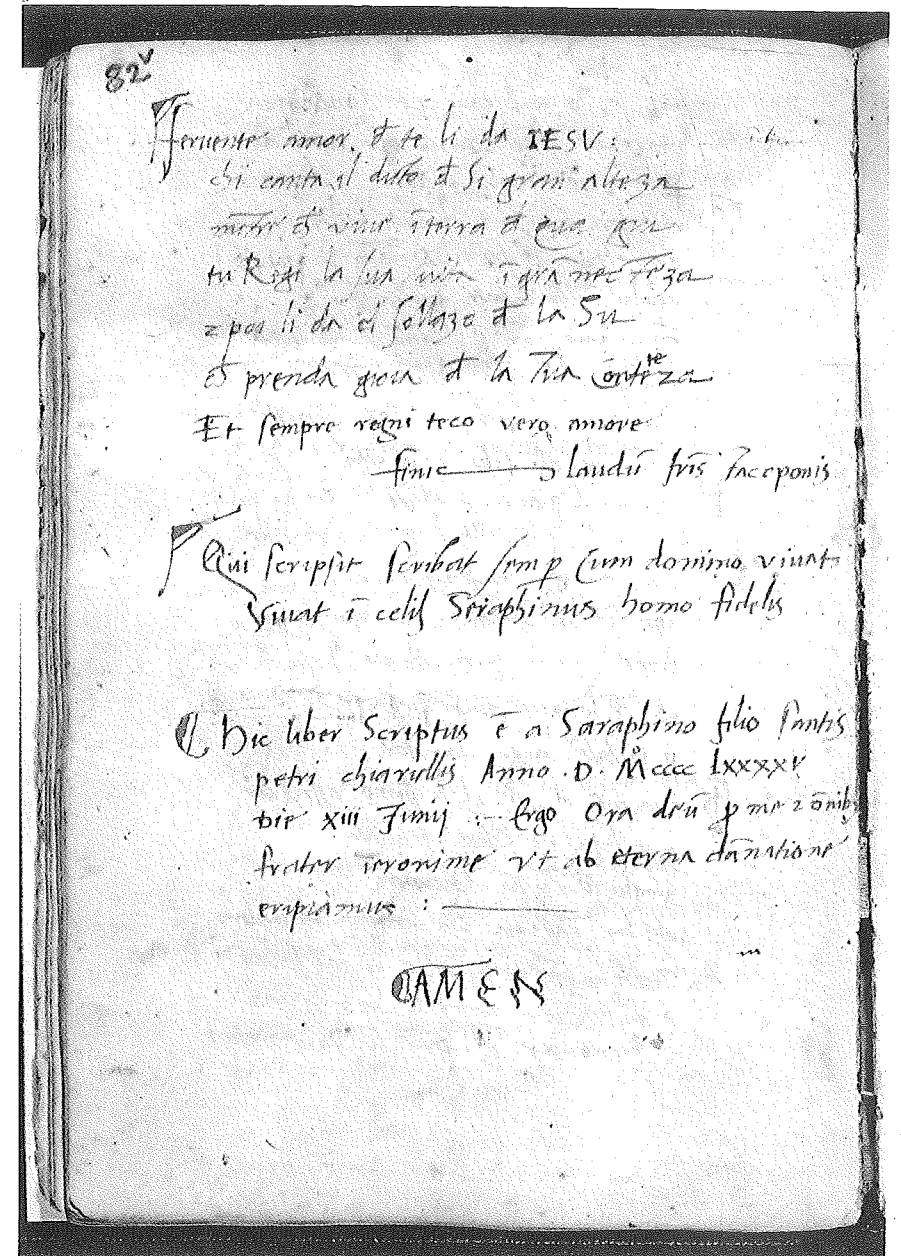 82v
fervente amor, đ te li da IESU:
chi canta il ditto đ Si gran alteza
vive ī terra đ qua giu
tu Regi la sua vita ī grā netteza
z poi li da el sollazo đ la Su
prenda gioia đ la Tua Conteza te
Et sempre regni teco vero amore
finis laudū fr̄is Iac oponis
Qui scripsit scribat semp̱ Cum domino vivat
Vivat ī celis Seraphinus homo fidelis
Hic liber Scriptus ē a Saraphino filio Santis
petri chiarullis Anno .D. M̊cccc lxxxxv
Die xiii Junij :- Ergo Ora deū p̱ me z ōnib;
frater ieronime vt ab eterna dānatione
eripiamus :
AMEN